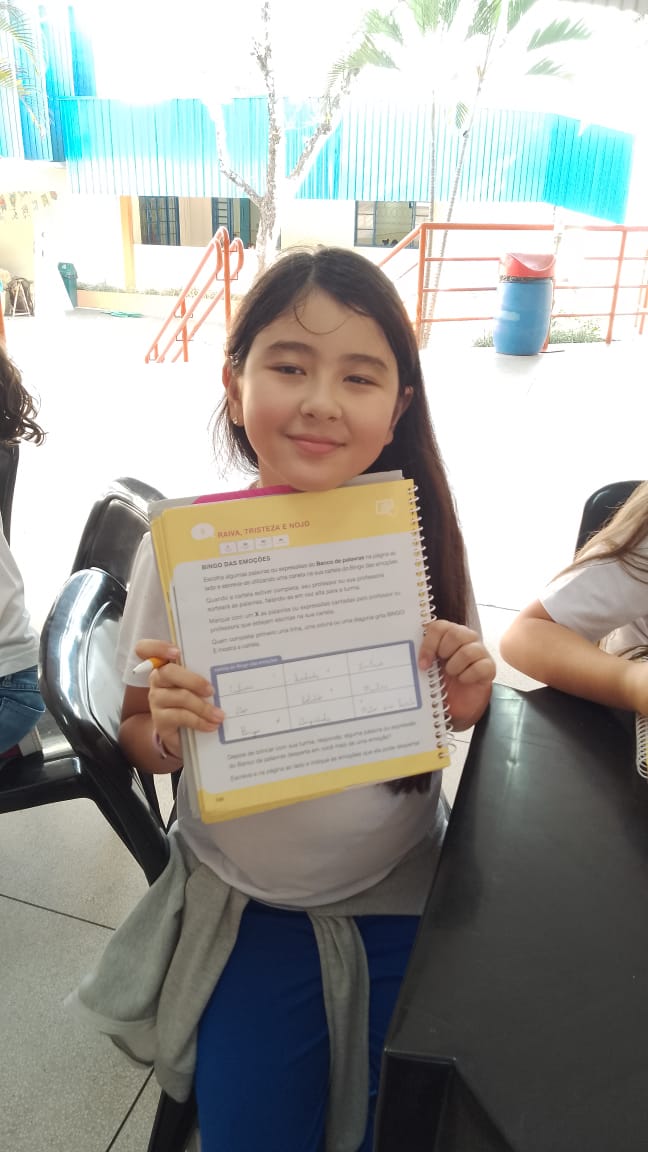 RAIVA, TRISTEZA E NOJO
BINGO DAS EMOÇÕES
Escolha algumas palavras ou expressões do Banco de palavras na página ao
lado e escreva-as utilizando uma caneta na sua cartela do Bingo das emoções.
Quando a cartela estiver completa, seu professor ou sua professora
sorteará as palavras, falando-as em voz alta para a turma.
Marque com um X as palavras ou expressões cantadas pelo professor ou
professora que estejam escritas na sua cartela.
Quem completar primeiro uma linha, uma coluna ou uma diagonal grita BINGO!
E mostra a cartela.
Cartela do Bingo das emoções
Briga
Depois de brincar com sua turma, responda: alguma palavra ou expressão
do Banco de palavras desperta em você mais de uma emoção?
Escreva-a na página ao lado e indique as emoções que ela pode despertar.